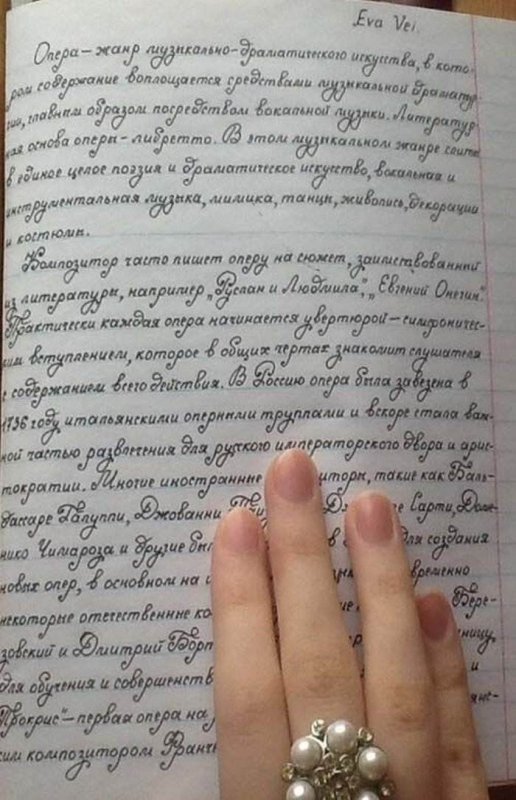 Eva Vei.
Опера – жанр музыкально-драматического искусства, в кото-
ром содержание воплощается средствами музыкальной драматур-
гии, главным образом посредством вокальной музыки. Литератур
ная основа оперы – либретто. В этом музыкальном жанре слиты
в единое целое поэзия и драматическое искусство, вокальная и
инструментальная музыка, мимика, танцы, живопись, декорации
и костюмы.
Композитор часто пишет оперу на сюжет, заимствованный
из литературы, например „Руслан и Людмила", „Евгений Онегин."
Практически каждая опера начинается увертюрой – симфоничес-
ким вступлением, которое в общих чертах знакомит слушателя
с содержанием всего действия. В Россию опера была завезена в
1736 году итальянскими оперными труппами и вскоре стала важ-
ной частью развлечения для русского императорского двора и арис-
тократии. Многие иностранные иторы, такие как Баль-
дассаре Галуппи, Джованни Сарти, Доме-
нико Чимароза и другие бы в для создания
новых опер, в основном на временно
некоторые отечественные ко Бере-
зовский и Дмитрий Борт ницу,
для обучения и совершенств и
Прокрис" – первая опера на
ким композитором Франч